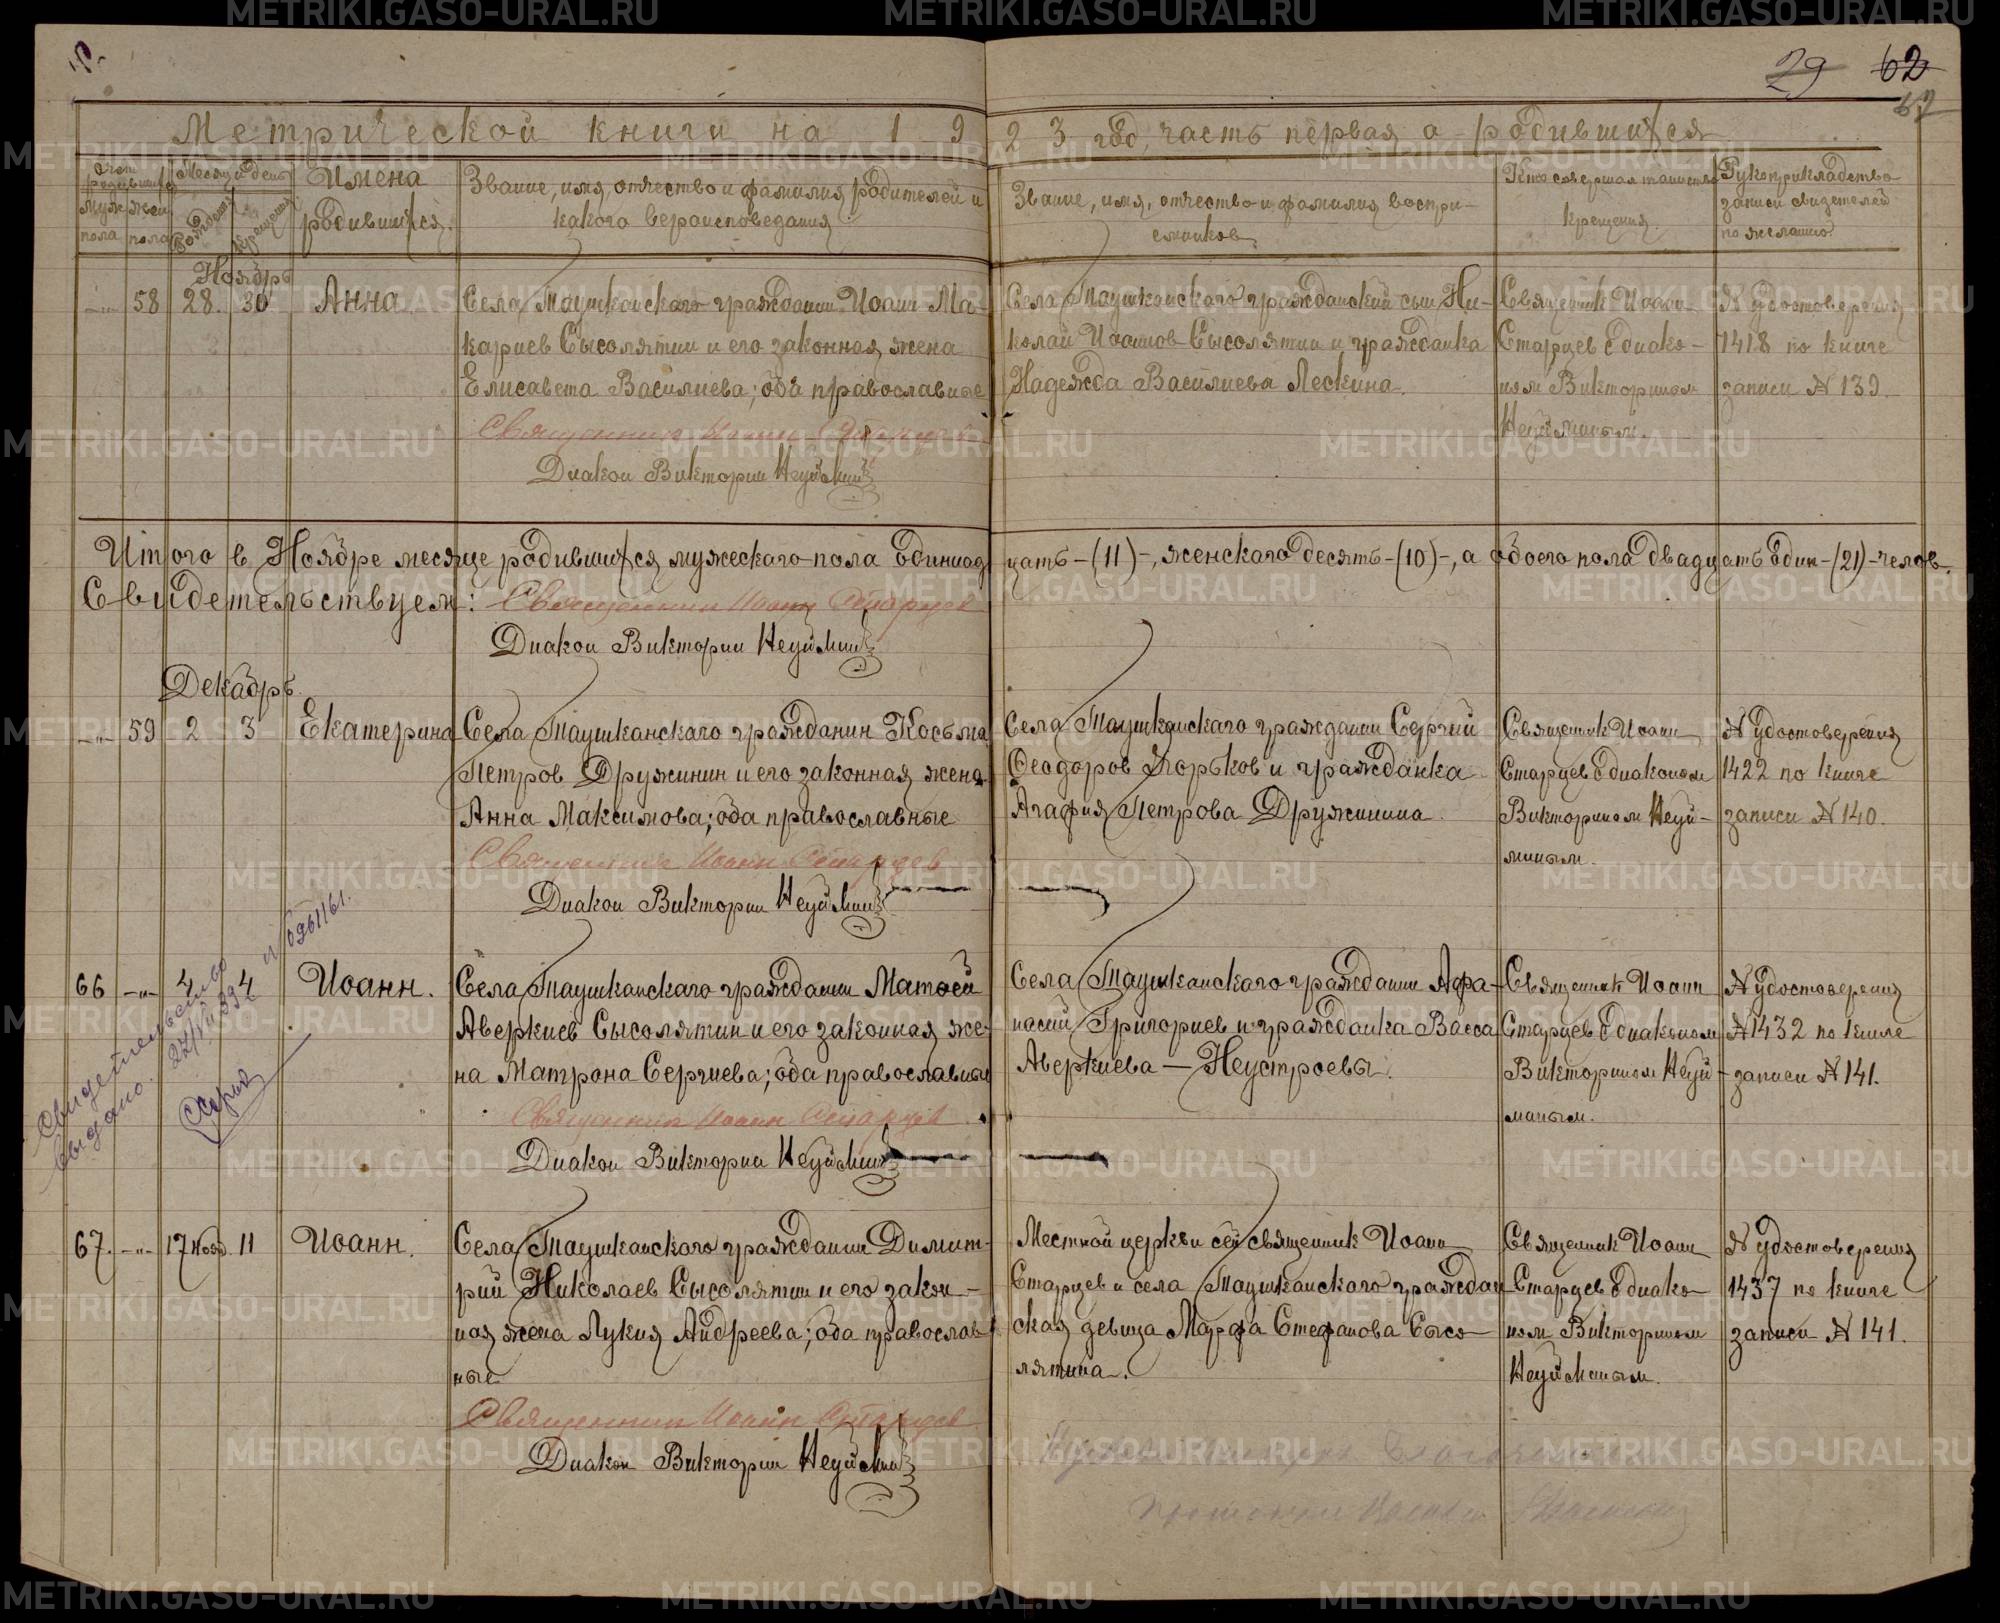 29 62
62
Метрической книги на 1923 год, часть первая о родившихся
Счет родившихся
Месяц и день
Имена
родившихся.
Звание, имя, отчество и фамилия родителей и
какого вероисповедания
Звание, имя, отчество и фамилия воспри-
емников
Кто совершал таинство
крещения
Рукоприкладство
записи свидетелей
по желанию.
муж. пола
жен. пола
рождения
крещения
Ноябрь
-"- 58 28. 30 Анна.
Села Таушканскаго гражданин Иоанн Ма-
кариев Сысолятин и его законная жена
Елисавета Василиева; оба православные
Священник Иоанн Старцев
Диакон Викторин Неуймин
Села Таушканскаго гражданский сын Ни-
колай Иоаннов Сысолятин и гражданка
Надежда Василиева Лескина.
Священник Иоанн
Старцев с диако-
ном Викторином
Неуйминым.
N удостоверения
1418 по книге
записи N 139.
Итого в Ноябре месяце родившихся мужескаго пола одиннадцать -(11)-, женскаго десять -(10)-, а обоего пола двадцать один -(21)- челов.
Свидетельствуем: Священник Иоанн Старцев
Диакон Викторин Неуймин
Декабрь.
-"- 59 2 3 Екатерина
Села Таушканскаго гражданин Косьма
Петров Дружинин и его законная жена
Анна Максимова; оба православные
Священник Иоанн Старцев
Диакон Викторин Неуймин
Села Таушканскаго гражданин Сергий
Феодоров Горьков и гражданка
Агафия Петрова Дружинина.
Священник Иоанн
Старцев с диаконом
Викторином Неуй-
миным.
N удостоверения
1422 по книге
записи N 140.
66 -"- 4 4 Иоанн.
Села Таушканскаго гражданин Матфей
Аверкиев Сысолятин и его законная же-
на Матрона Сергиева; оба православны
Священник Иоанн Старцев
Диакон Викторин Неуймин
Села Таушканскаго гражданин Афа-
насий Григориев и гражданка Васса
Аверкиева — Неустроевы.
Священник Иоанн
Старцев с диаконом
Викторином Неуй-
миным.
N удостоверения
N 1432 по книге
записи N 141.
Свидетельство
выдано.
67. -"- 17 нояб. 11 Иоанн.
Села Таушканскаго гражданин Димит-
рий Николаев Сысолятин и его закон-
ная жена Лукия Андреева; оба православ
ные
Священник Иоанн Старцев
Диакон Викторин Неуймин
Местной церкви сей священник Иоанн
Старцев и села Таушканскаго граждан
ская девица Марфа Стефанова Сысо-
лятина.
Священник Иоанн
Старцев с диако-
ном Викторином
Неуйминым.
N удостоверения
1437 по книге
записи N 141.
METRIKI.GASO-URAL.RU